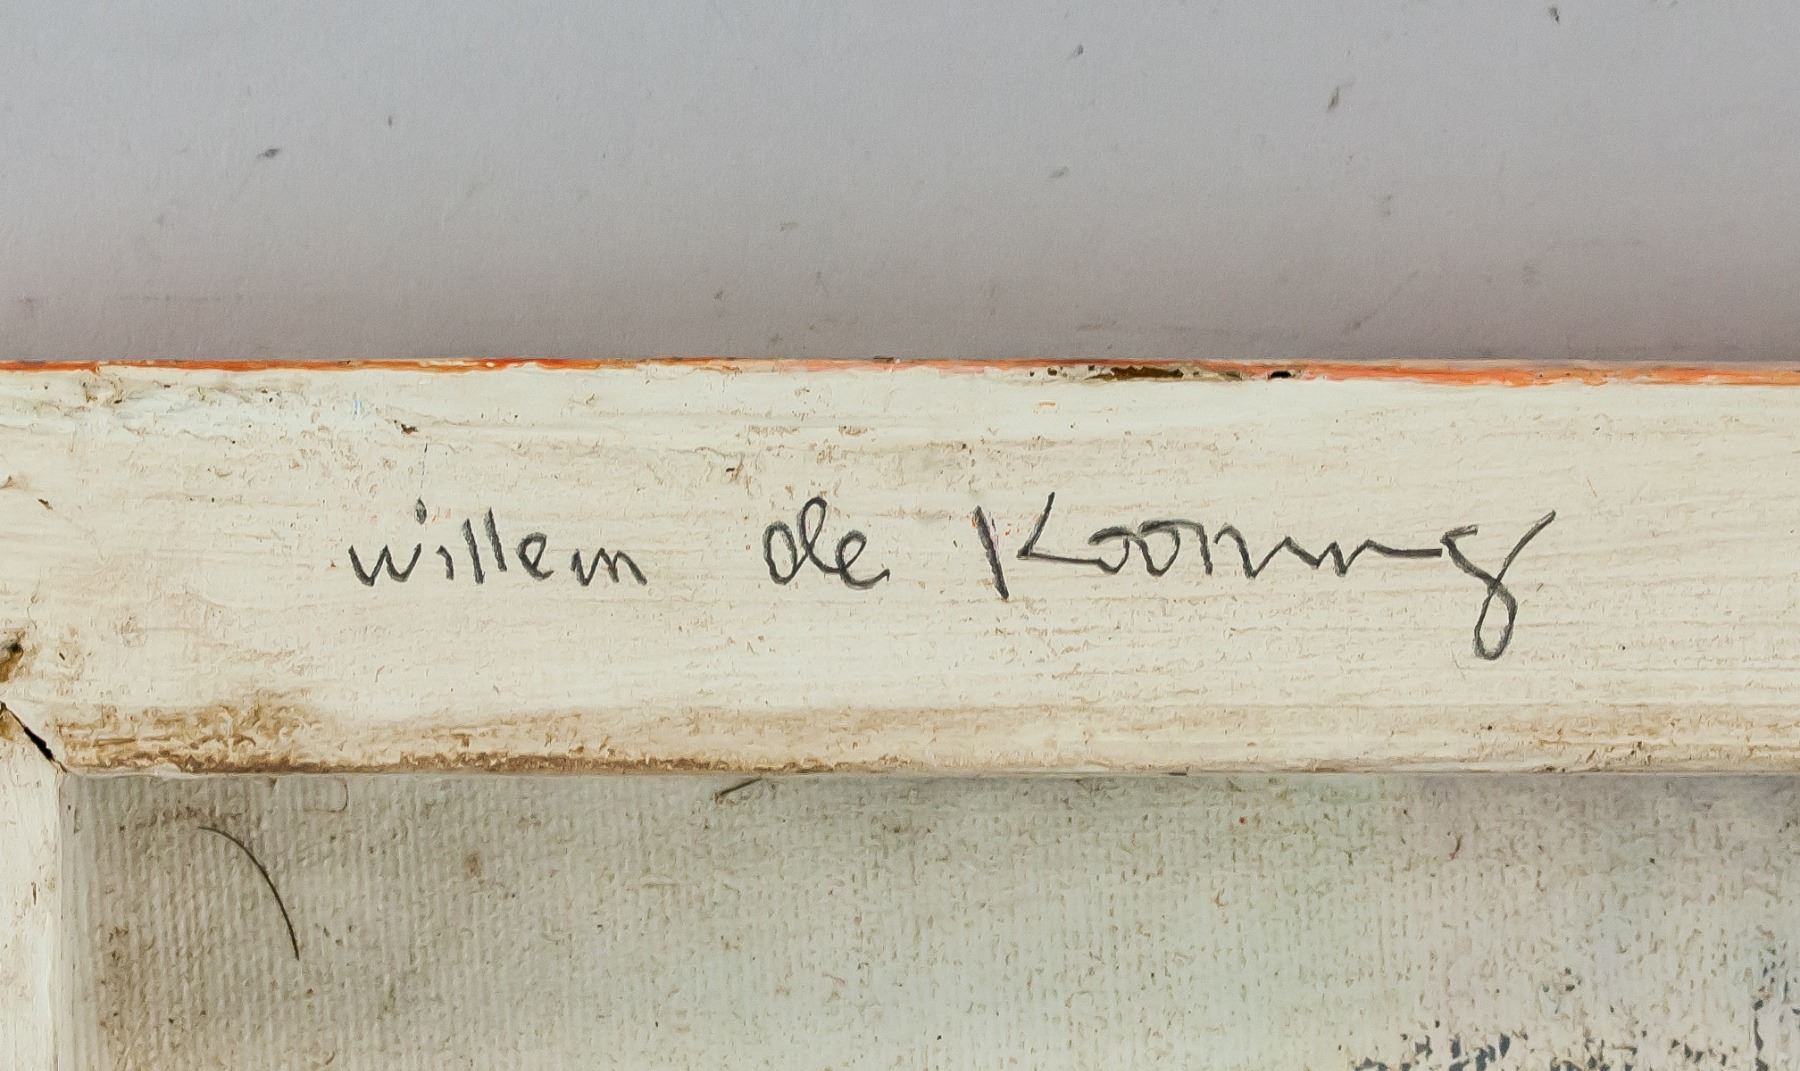 willem de Kooning